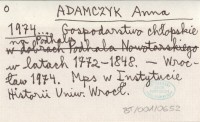 O
ADAMCZYK Anna
1974. Gospodarstwo chłopskie
na Podhalu
w dobrach Podhala Nowotarskiego
w latach 1772-1848. – Wroc-
ław 1974. Mps w Instytucie
Historii Uniw. Wrocł.